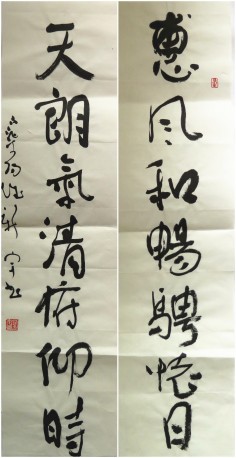 惠风和暢騁懷日
天朗氣清俯仰時